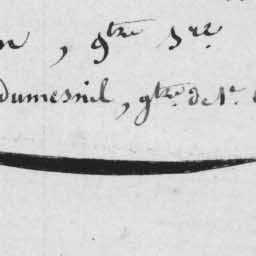 , gtre 5re.
dumesnil, gtre. de 1e.